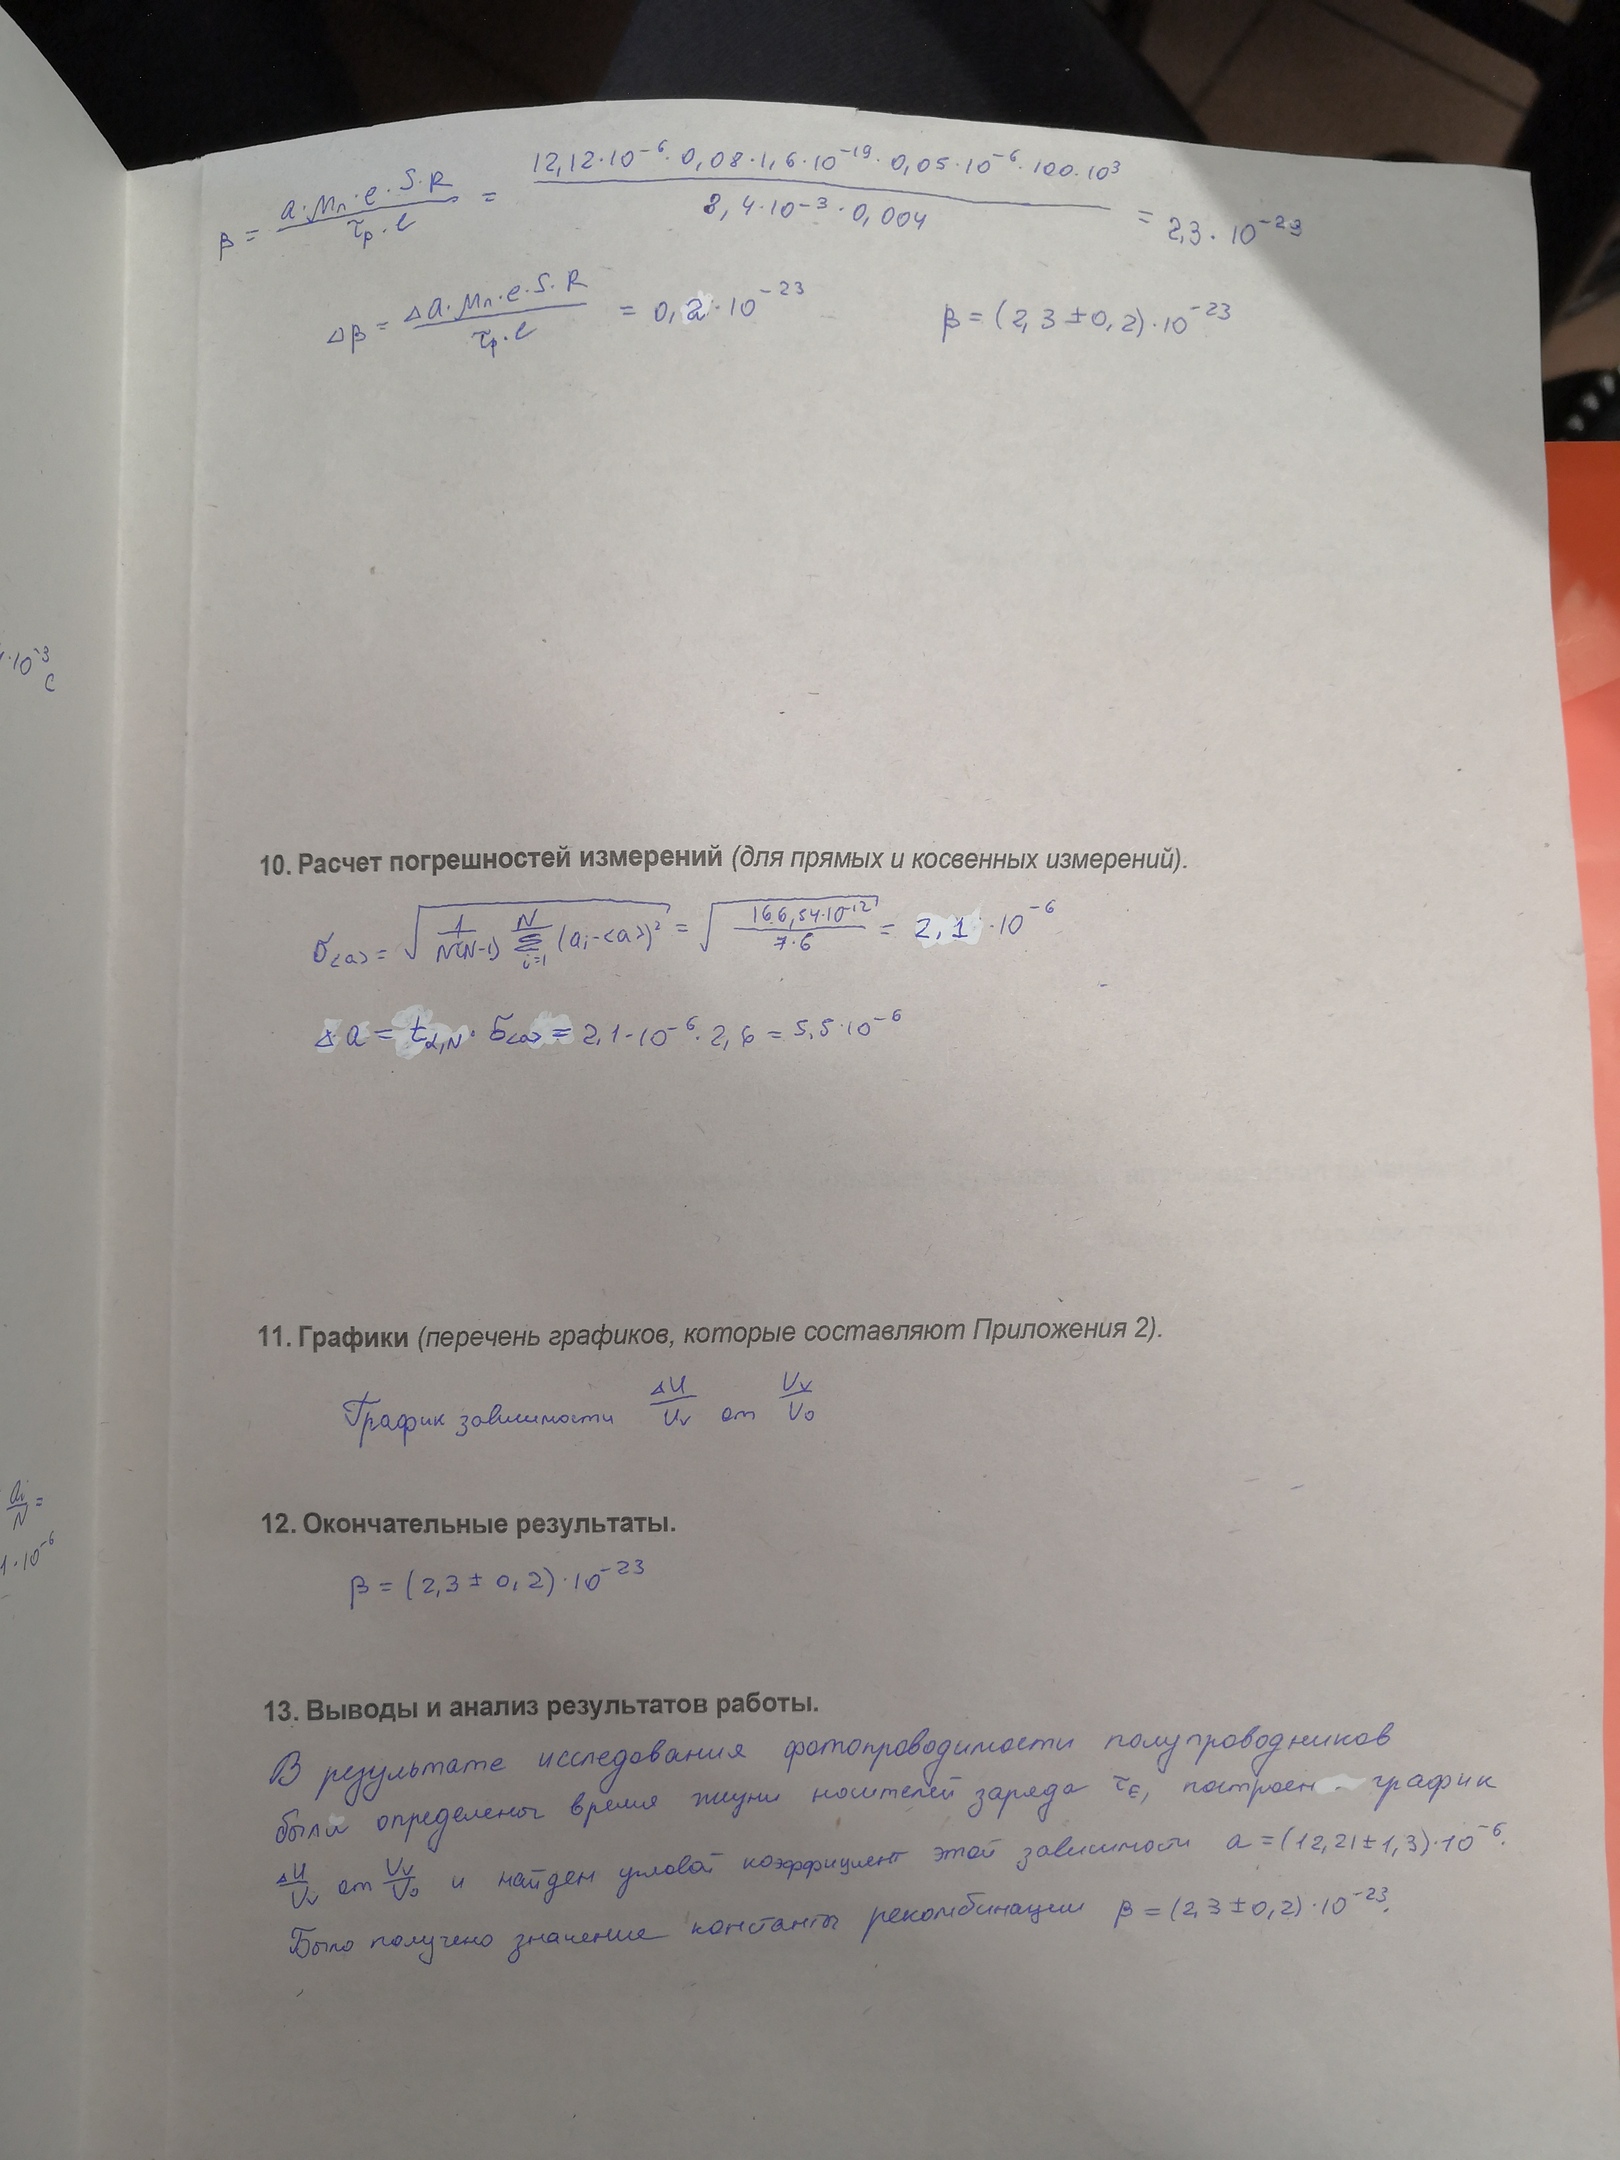 β = a·μn·e·S·R / τp·l = 12,12·10⁻⁶·0,08·1,6·10⁻¹⁹·0,05·10⁻⁶·100·10³ / 8,4·10⁻³·0,004 = 2,3·10⁻²³
Δβ = Δa·μn·e·S·R / τp·l = 0,2·10⁻²³ β = (2,3 ± 0,2)·10⁻²³
·10⁻³
с
10. Расчет погрешностей измерений (для прямых и косвенных измерений).
σ<a> = √(1/N(N-1) Σ i=1 N (ai-<a>)²) = √(166,54·10⁻¹² / 7·6) = 2,1·10⁻⁶
Δa = tα,N · σ<a> = 2,1·10⁻⁶·2,6 = 5,5·10⁻⁶
11. Графики (перечень графиков, которые составляют Приложения 2).
График зависимости ΔU/Uv от Uv/U0
ai/N =
1·10⁻⁶
12. Окончательные результаты.
β = (2,3 ± 0,2)·10⁻²³
13. Выводы и анализ результатов работы.
В результате исследования фотопроводимости полупроводников
были определены время жизни носителей заряда τε, построен график
ΔU/Uv от Uv/U0 и найден угловой коэффициент этой зависимости a = (12,21 ± 1,3)·10⁻⁶.
Было получено значение константы рекомбинации β = (2,3 ± 0,2)·10⁻²³.